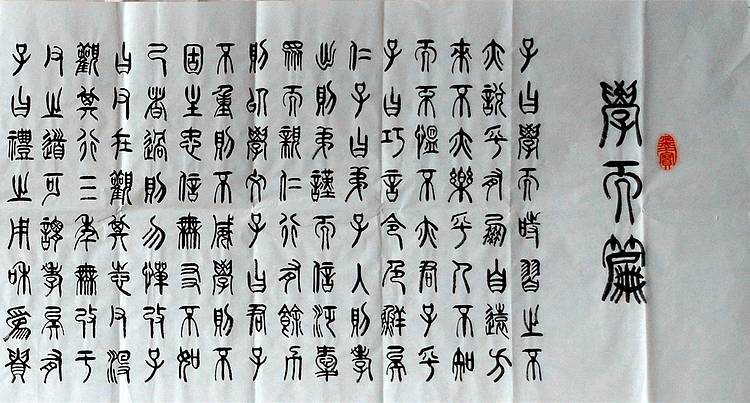 學而篇
子曰學而時習之不
亦說乎有朋自遠方
來不亦樂乎人不知
而不慍不亦君子乎
子曰巧言令色鮮矣
仁子曰弟子入則孝
出則弟謹而信汎愛
眾而親仁行有餘力
則以學文子曰君子
不重則不威學則不
固主忠信無友不如
己者過則勿憚改子
曰父在觀其志父沒
觀其行三年無改于
父之道可謂孝矣有
子曰禮之用和為貴